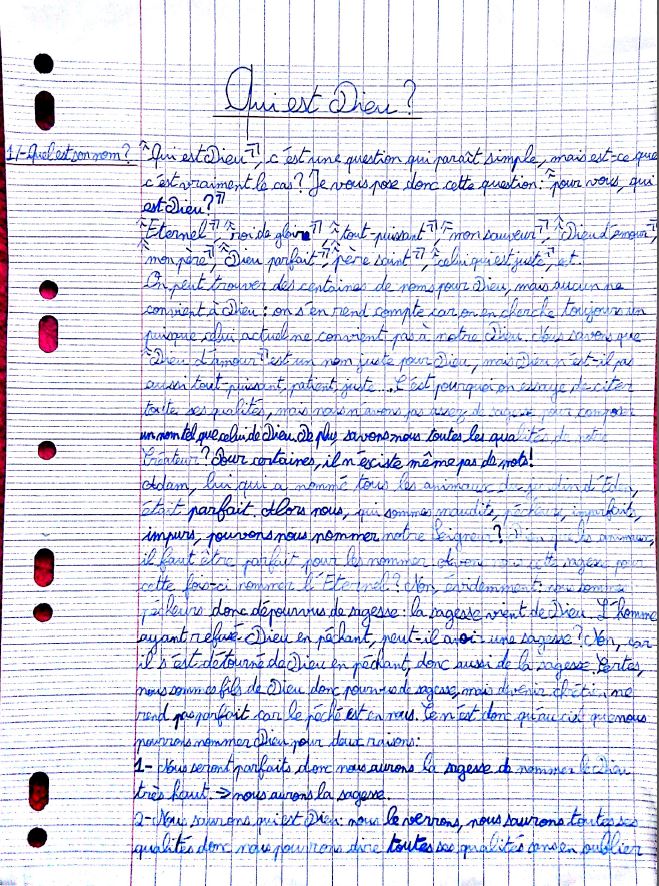 Qui est Dieu ?
1/- Quel est son nom ? "Qui est Dieu", c'est une question qui paraît simple, mais est-ce que
c'est vraiment le cas ? Je vous pose donc cette question : "pour vous, qui
est Dieu ?"
"Eternel", "roi de gloire", "tout-puissant", "mon sauveur", "Dieu d'amour",
"mon père", "Dieu parfait", "père saint", "celui qui est juste", et.
On peut trouver des centaines de noms pour Dieu, mais aucun ne
convient à Dieu : on s'en rend compte car on en cherche toujours un
puisque celui actuel ne convient pas à notre Dieu. Nous savons que
"Dieu d'amour" est un nom juste pour Dieu, mais Dieu n'est-il pas
aussi tout-puissant, patient, juste... C'est pourquoi on essaye de citer
toute ses qualités, mais nous n'avons pas assez de sagesse pour composer
un nom tel que celui de Dieu. De plus savons nous toutes les qualités de notre
Créateur ? Pour certaines, il n'existe même pas de mots !
Adam, lui qui a nommé tous les animaux du jardin d'Eden,
était parfait. Alors nous, qui sommes maudits, pécheurs, imparfaits,
impurs, pouvons nous nommer notre Seigneur ? les animaux,
il faut être parfait pour les nommer cette sagesse pour
cette fois-ci nommer l'Eternel ? Non, évidemment : nous sommes
pécheurs donc dépourvus de sagesse : la sagesse vient de Dieu. L'homme
ayant refusé Dieu en péchant, peut-il avoir une sagesse ? Non, car
il s'est détourné de Dieu en péchant, donc aussi de la sagesse. Certes,
nous sommes fils de Dieu donc pourvus de sagesse, mais devenir chrétien ne
rend pas parfait car le péché est en nous. Ce n'est donc qu'au ciel que nous
pourrons nommer Dieu pour deux raisons :
1- Nous seront parfaits donc nous aurons la sagesse de nommer le Dieu
très haut. -> nous aurons la sagesse.
2- Nous saurons qui est Dieu : nous le verrons, nous saurons toutes ses
qualités donc nous pourrons dire toutes ses qualités sans en oublier